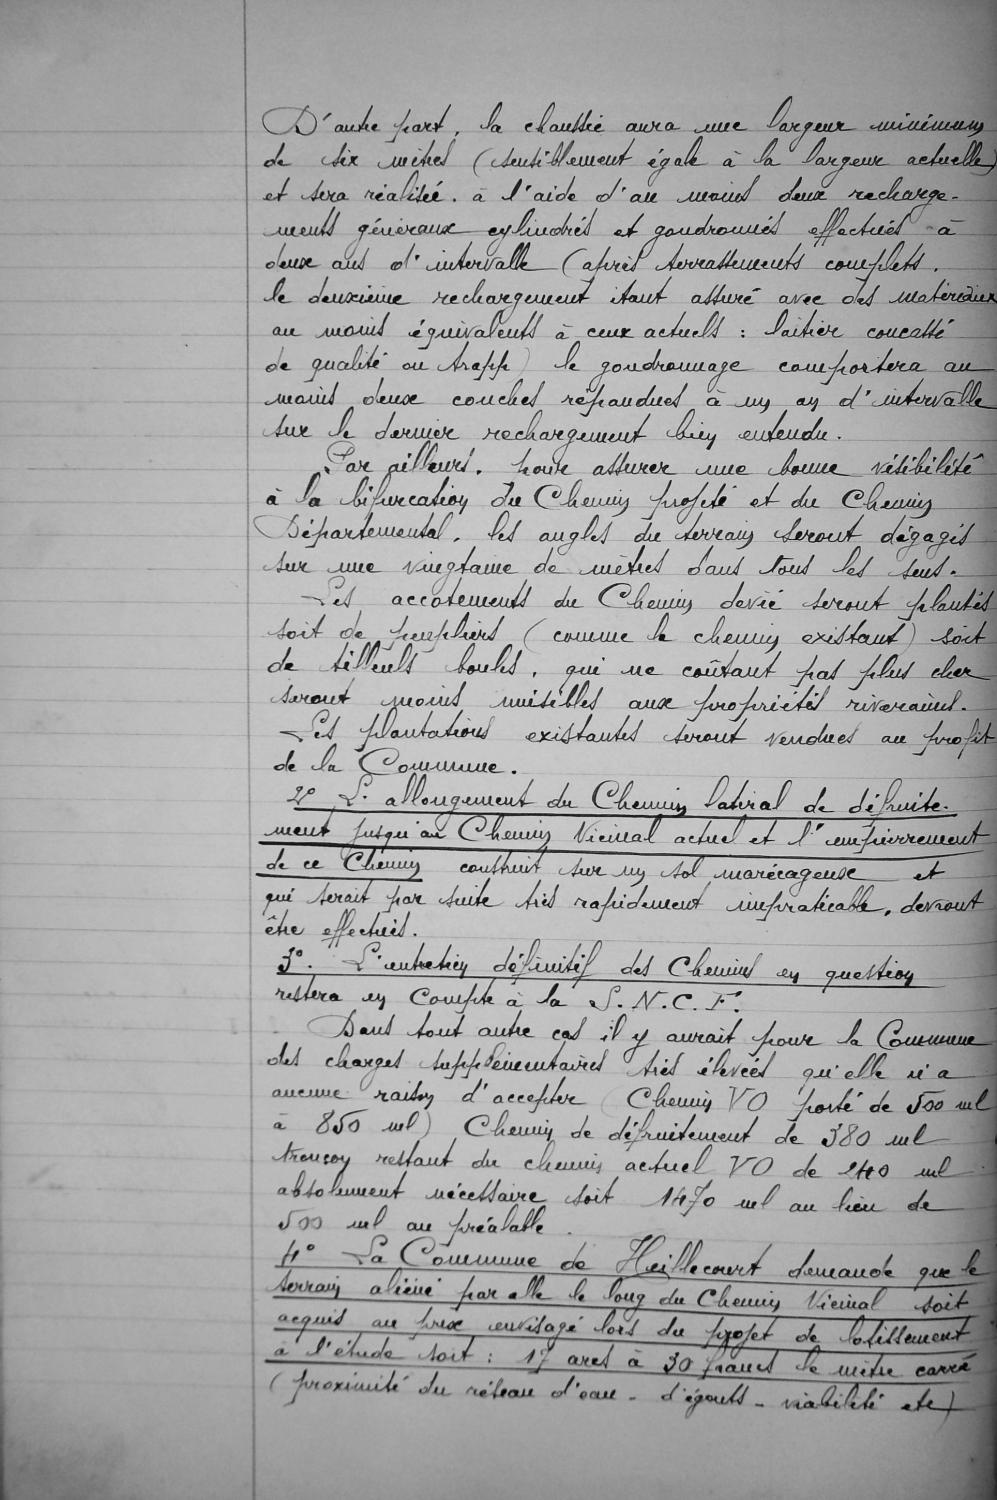 D'autre part, la chaussée aura une largeur minimum
de six mètres (sensiblement égale à la largeur actuelle)
et sera réalisée. à l'aide d'au moins deux recharge-
ments généraux cylindrés et goudronnés effectués à
deux ans d'intervalle (après terrassements complets.
le deuxième rechargement étant assuré avec des matériaux
au moins équivalents à ceux actuels : laitier concassé
de qualité ou trapp) le goudronnage comportera au
moins deux couches répandues à un an d'intervalle
sur le dernier rechargement bien entendu.
Par ailleurs. pour assurer une bonne visibilité
à la bifurcation du Chemin projeté et du Chemin
Départemental. les angles du terrain seront dégagés
sur une vingtaine de mètres dans tous les sens.
Les accotements du Chemin dévié seront plantés
soit de peupliers (comme le chemin existant) soit
de tilleuls boules, qui ne coûtant pas plus cher
seront moins nuisibles aux propriétés riveraines.
Les plantations existantes seront vendues au profit
de la Commune.
2° L'allongement du Chemin latéral de défruite-
ment jusqu'au Chemin Vicinal actuel et l'empierrement
de ce Chemin construit sur un sol marécageux et
qui serait par suite très rapidement impraticable, devront
être effectués.
3°. L'entretien définitif des Chemins en question
restera en Compte à la S.N.C.F.
Dans tout autre cas il y aurait pour la Commune
des charges supplémentaires très élevées qu'elle n'a
aucune raison d'accepter (Chemin VO porté de 500 ml
à 850 ml) Chemin de défruitement de 380 ml
tronçon restant du chemin actuel VO de 240 ml
absolument nécessaire soit 1470 ml au lieu de
500 ml au préalable.
4° La Commune de Heillecourt demande que le
terrain aliéné par elle le long du Chemin Vicinal soit
acquis au prix envisagé lors du projet de lotissement
à l'étude soit : 17 ares à 30 francs le mètre carré
(proximité du réseau d'eau - d'égouts - viabilité etc)